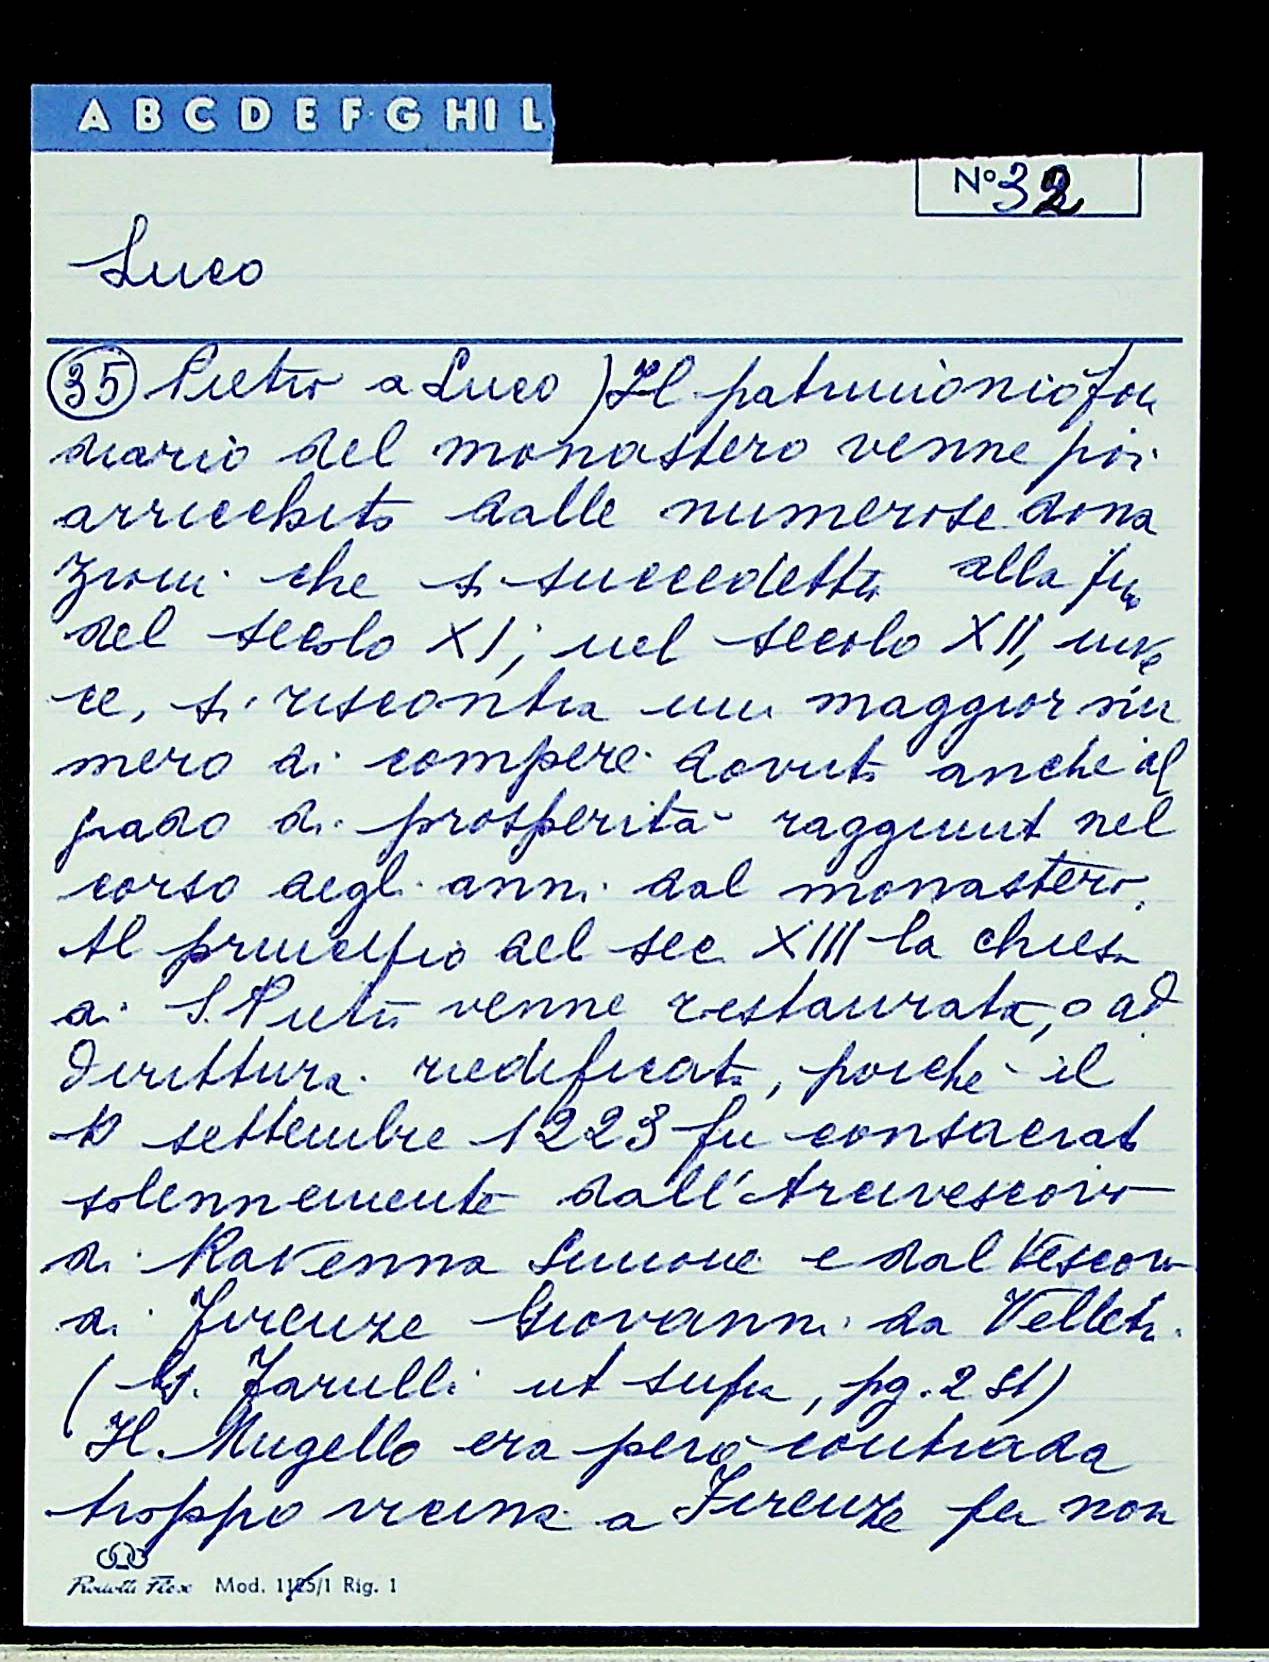 A B C D E F G H I L
N° 32
Luco
35 Pietro a Luco) Il patrimonio fon
diario del monastero venne poi
arricchito dalle numerose dona
zioni che si succedette alla fine
del secolo XI; nel secolo XII, inve
ce, si riscontra un maggior nu
mero di compere dovute anche al
grado di prosperità raggiunt nel
corso degli anni dal monastero.
Al principio del sec XIII la chiesa
di S. Pietro venne restaurata, o ad
dirittura riedificata, poiché il
settembre 1223 fu consacrata
solennemente dall'Arcivescovo
di Ravenna Simone e dal Vescovo
di Firenze Giovanni da Velletri.
( G. Farulli ut supra, pg. 281)
Il Mugello era però contrada
troppo vicina a Firenze per non
Mod. 1125/1 Rig. 1